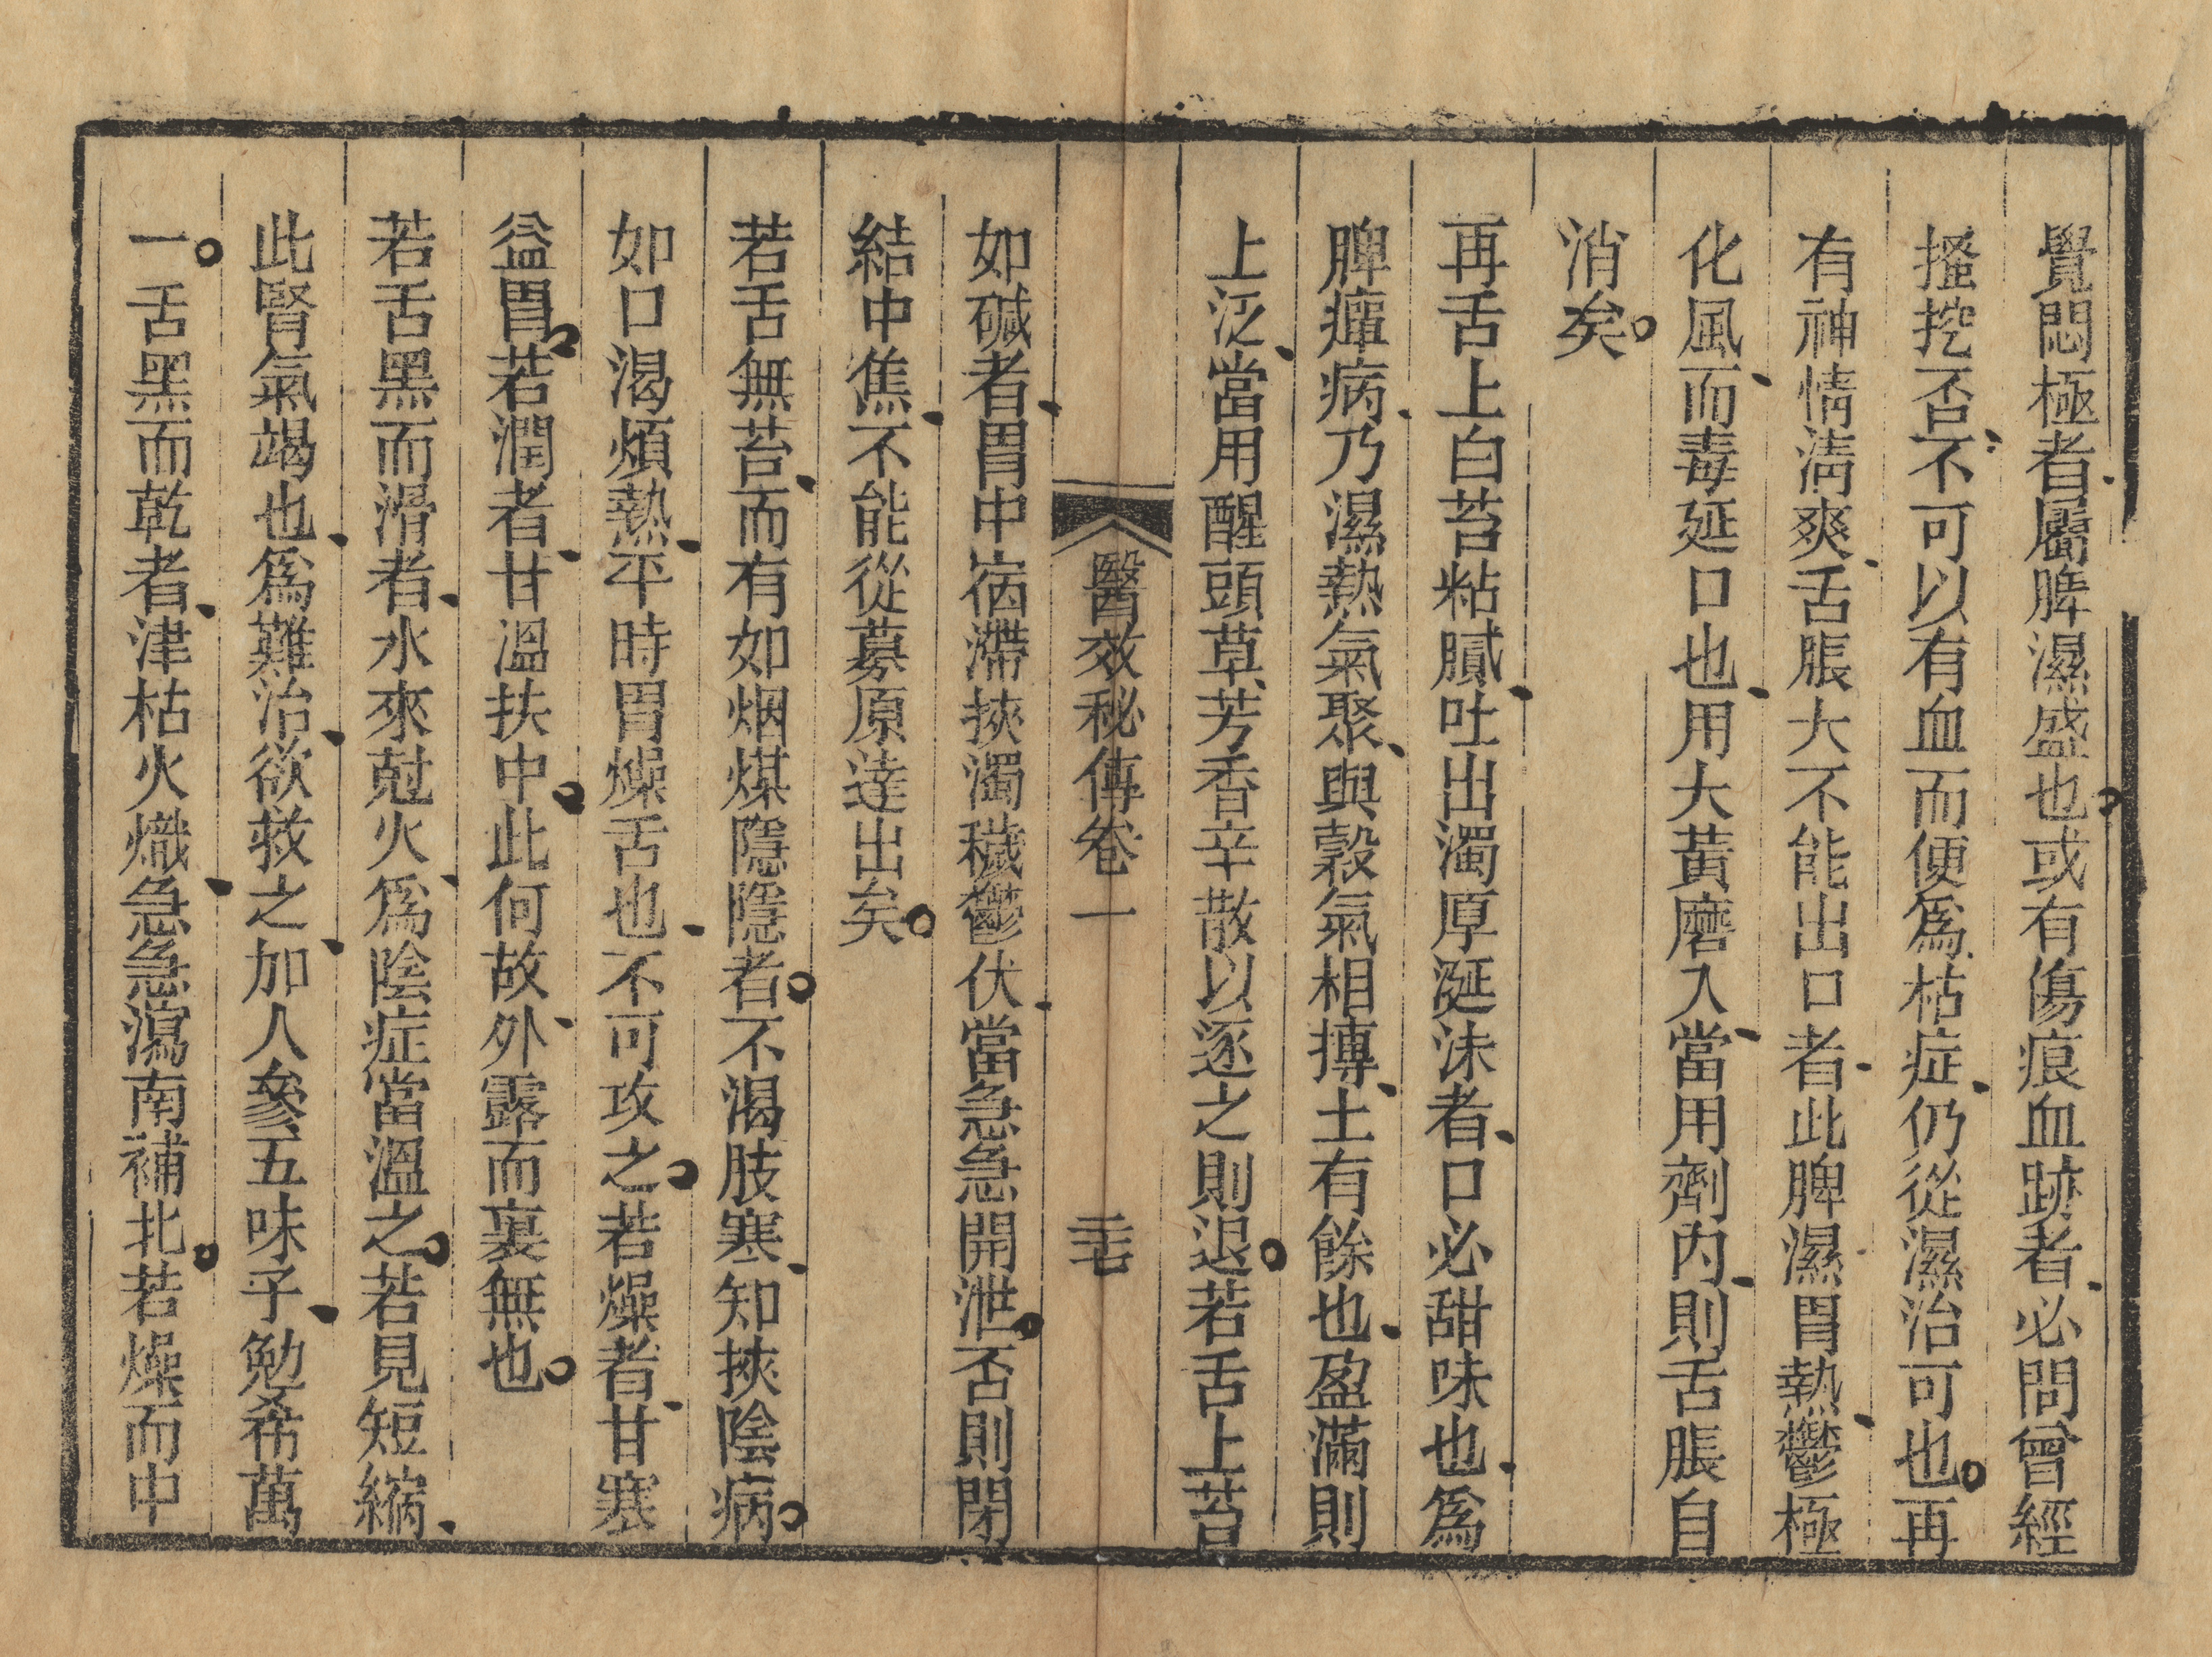 覺悶極者屬脾濕盛也或有傷痕血跡者必問曾經
搔挖否不可以有血而便爲枯症仍從濕治可也再
有神情清爽舌脹大不能出口者此脾濕胃熱鬱極
化風而毒延口也用大黃磨入當用劑內則舌脹自
消矣
再舌上白苔粘膩吐出濁厚涎沫者口必甜味也爲
脾癉病乃濕熱氣聚與穀氣相搏土有餘也盈滿則
上泛當用醒頭草芳香辛散以逐之則退若舌上苔
醫效秘傳卷一
三七
如碱者胃中宿滯挾濁穢鬱伏當急急開泄否則閉
結中焦不能從募原達出矣
若舌無苔而有如烟煤隱隱者不渴肢寒知挾陰病
如口渴煩熱平時胃燥舌也不可攻之若燥者甘寒
益胃若潤者甘溫扶中此何故外露而裏無也
若舌黑而滑者水來尅火爲陰症當溫之若見短縮
此腎氣竭也爲難治欲救之加人參五味子勉希萬
一舌黑而乾者津枯火熾急急瀉南補北若燥而中